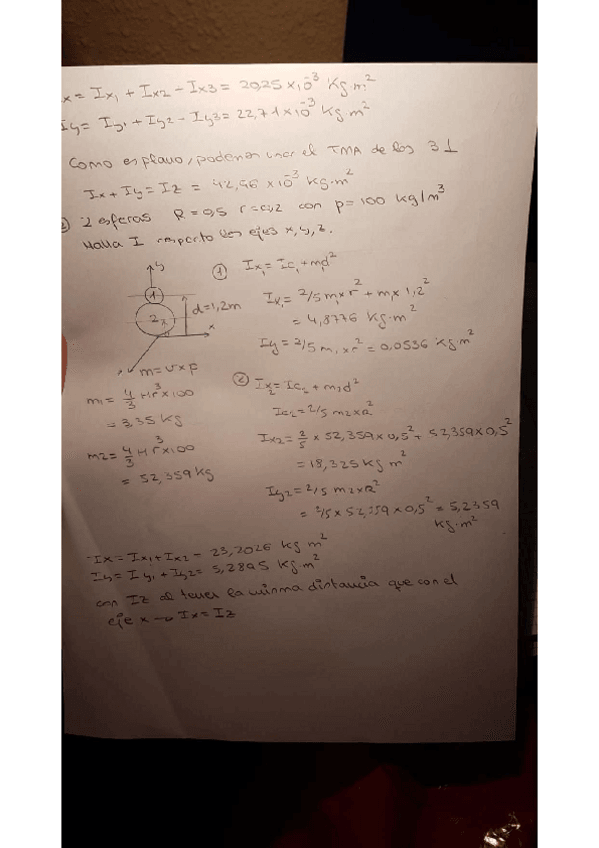 x = Ix1 + Ix2 - Ix3 = 20,25 x10^-3 Kg·m^2
Iy = Iy1 + Iy2 - Iy3 = 22,71 x10^-3 Kg·m^2
Como es plano, podemos usar el TMA de los 3 ⊥
Ix + Iy = Iz = 42,96 x10^-3 Kg·m^2
2) 2 esferas R = 0,5 r = 0,2 con p = 100 kg/m^3
Halla I respecto los ejes x, y, z.
y
1
2
d = 1,2m
x
m = v x p
m1 = 4/3 π r^3 x 100
= 3,35 kg
m2 = 4/3 π r^3 x 100
= 52,359 kg
① Ix1 = Ic1 + m1d^2
Ix1 = 2/5 m1 x r^2 + m1 x 1,2^2
= 4,8776 Kg·m^2
Iy = 2/5 m1 x r^2 = 0,0536 Kg·m^2
② Ix2 = Ic2 + m2d^2
Ic2 = 2/5 m2 x R^2
Ix2 = 2/5 x 52,359 x 0,5^2 + 52,359 x 0,5^2
= 18,325 Kg m^2
Iy2 = 2/5 m2 x R^2
= 2/5 x 52,359 x 0,5^2 = 5,2359
Kg·m^2
Ix = Ix1 + Ix2 = 23,2026 kg m^2
Iy = Iy1 + Iy2 = 5,2895 Kg·m^2
con Iz al tener la misma distancia que con el
eje x → Ix = Iz